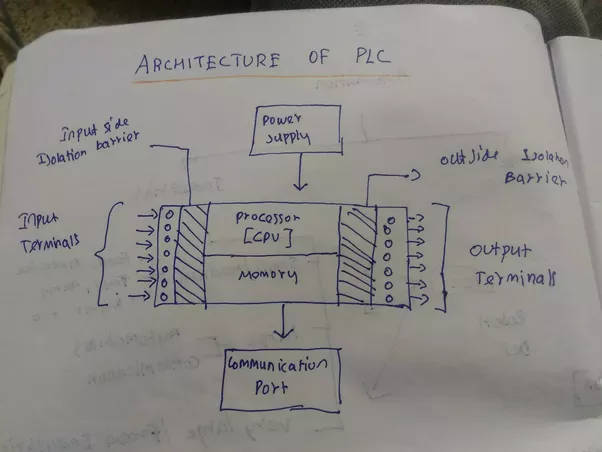 ARCHITECTURE OF PLC
Power
supply
Input side
Isolation barrier
Outside Isolation
Barrier
Input
Terminals
processor
[CPU]
Memory
Output
Terminals
Communication
Port